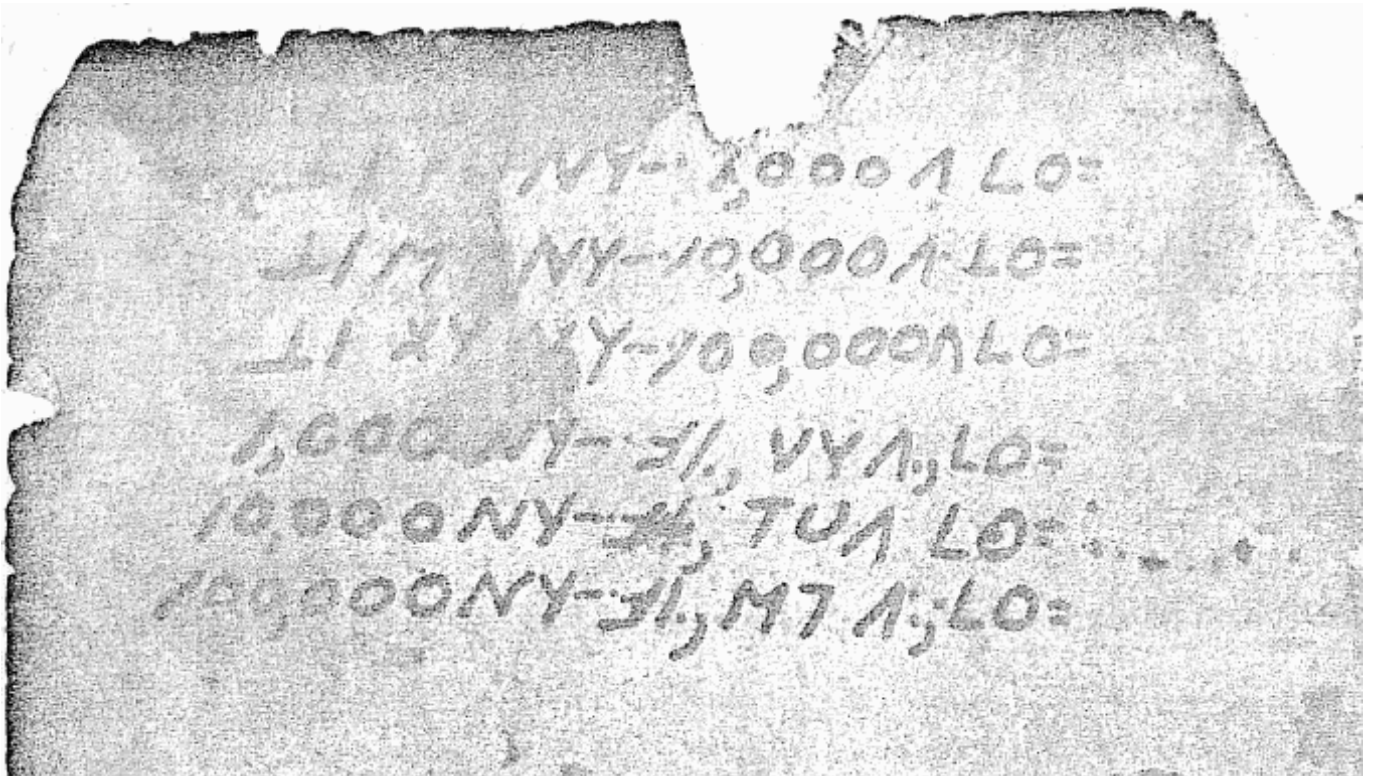 NY-·1,000Λ LO=
⊥IM NY-·10,000Λ·LO=
⊥I XY NY-100,000ΛLO=
1,000NY-·=/., VYΛ.,LO=
10,000NY-·=/., TUΛ LO=
100,000NY-·=/.,M7 Λ.,LO=